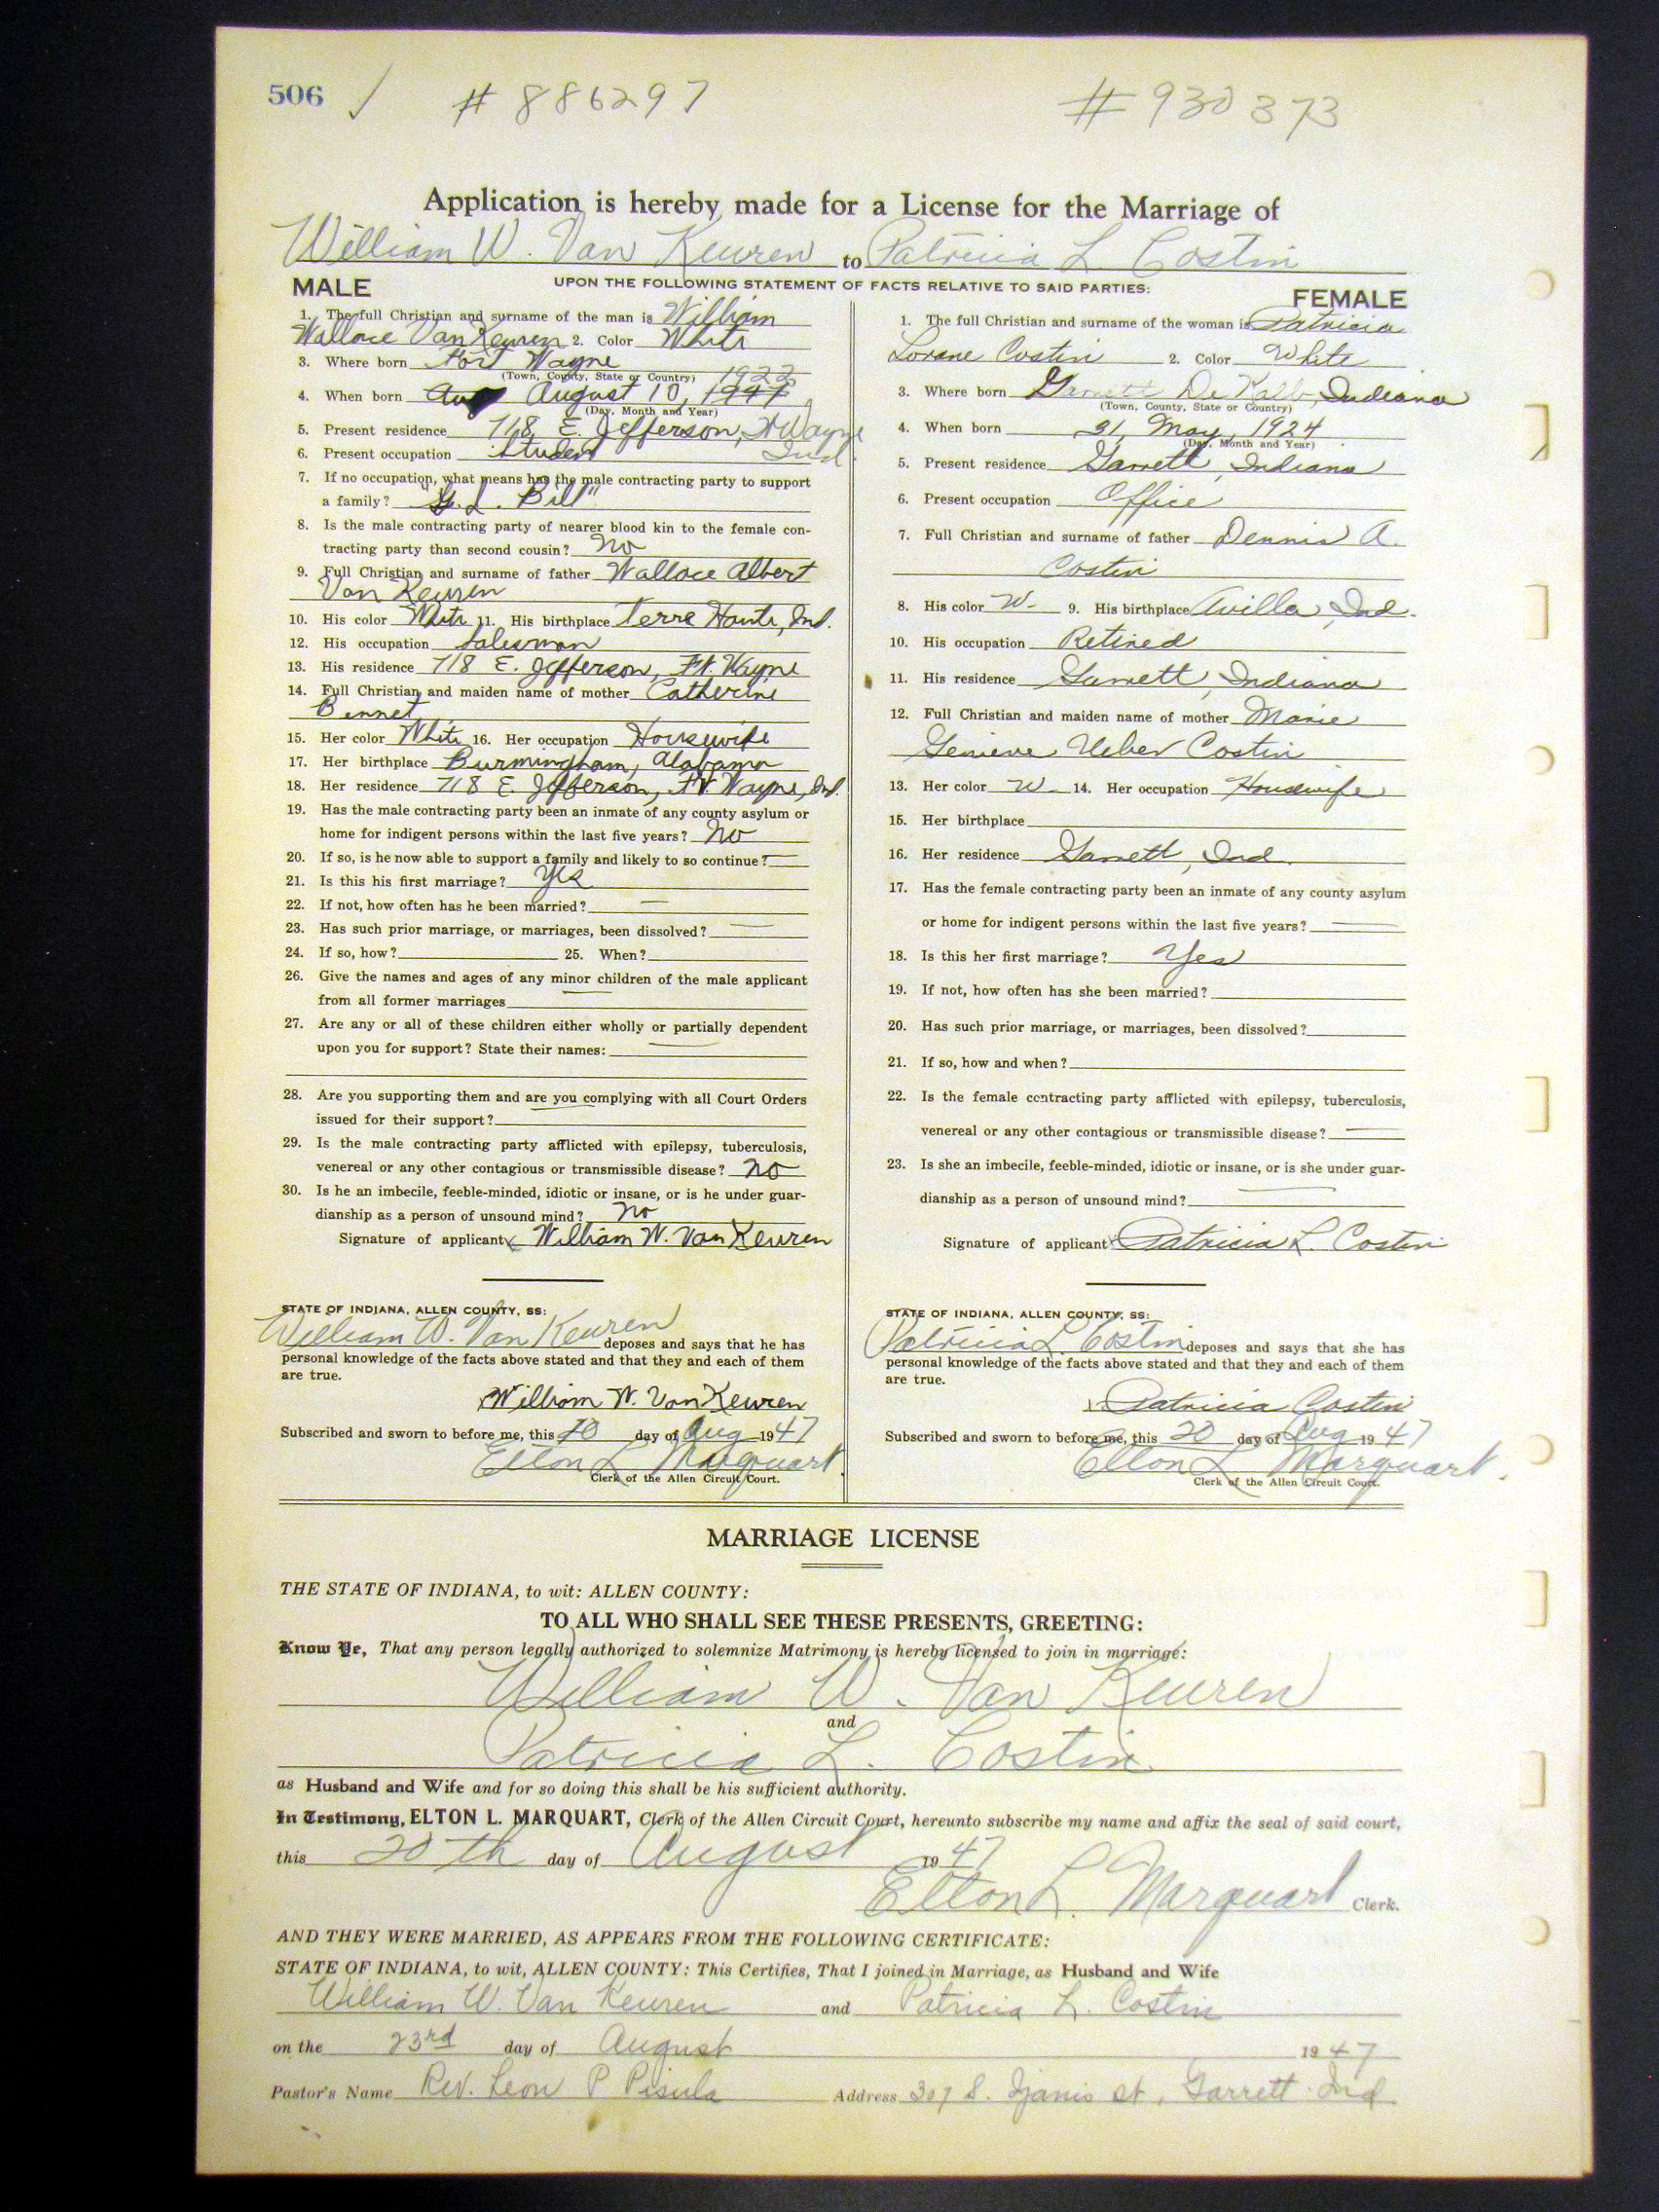 506 / # 886297 # 930373
Application is hereby made for a License for the Marriage of
William W. Van Keuren to Patricia L. Costin
UPON THE FOLLOWING STATEMENT OF FACTS RELATIVE TO SAID PARTIES:
MALE
1. The full Christian and surname of the man is William
Wallace Van Keuren 2. Color White
3. Where born Fort Wayne
(Town, County, State or Country)
1922
4. When born Aug August 10, 1947
(Day, Month and Year)
5. Present residence 718 E. Jefferson, Ft Wayne
6. Present occupation Student Ind.
7. If no occupation, what means has the male contracting party to support
a family? "G.I. Bill"
8. Is the male contracting party of nearer blood kin to the female con-
tracting party than second cousin? No
9. Full Christian and surname of father Wallace Albert
Van Keuren
10. His color White 11. His birthplace Terre Haute, Ind.
12. His occupation Salesman
13. His residence 718 E. Jefferson, Ft. Wayne
14. Full Christian and maiden name of mother Catherine
Bennet
15. Her color White 16. Her occupation Housewife
17. Her birthplace Burmingham, Alabama
18. Her residence 718 E. Jefferson, Ft Wayne, Ind.
19. Has the male contracting party been an inmate of any county asylum or
home for indigent persons within the last five years? No
20. If so, is he now able to support a family and likely to so continue? —
21. Is this his first marriage? Yes
22. If not, how often has he been married? —
23. Has such prior marriage, or marriages, been dissolved? —
24. If so, how? 25. When?
26. Give the names and ages of any minor children of the male applicant
from all former marriages —
27. Are any or all of these children either wholly or partially dependent
upon you for support? State their names: —
28. Are you supporting them and are you complying with all Court Orders
issued for their support? —
29. Is the male contracting party afflicted with epilepsy, tuberculosis,
venereal or any other contagious or transmissible disease? No
30. Is he an imbecile, feeble-minded, idiotic or insane, or is he under guar-
dianship as a person of unsound mind? No
Signature of applicant x William W. Van Keuren
STATE OF INDIANA, ALLEN COUNTY, SS:
William W. Van Keuren deposes and says that he has
personal knowledge of the facts above stated and that they and each of them
are true.
William W. Van Keuren
Subscribed and sworn to before me, this 20 day of Aug 1947
Elton L Marquart
Clerk of the Allen Circuit Court.
FEMALE
1. The full Christian and surname of the woman is Patricia
Lorane Costin 2. Color White
3. Where born Garrett De Kalb, Indiana
(Town, County, State or Country)
4. When born 31, May, 1924
(Day, Month and Year)
5. Present residence Garrett, Indiana
6. Present occupation Office
7. Full Christian and surname of father Dennis A.
Costin
8. His color W- 9. His birthplace Avilla, Ind.
10. His occupation Retired
11. His residence Garrett, Indiana
12. Full Christian and maiden name of mother Marie
Genieve Ueber Costin
13. Her color W 14. Her occupation Housewife
15. Her birthplace
16. Her residence Garrett, Ind.
17. Has the female contracting party been an inmate of any county asylum
or home for indigent persons within the last five years? —
18. Is this her first marriage? Yes
19. If not, how often has she been married?
20. Has such prior marriage, or marriages, been dissolved?
21. If so, how and when?
22. Is the female contracting party afflicted with epilepsy, tuberculosis,
venereal or any other contagious or transmissible disease? —
23. Is she an imbecile, feeble-minded, idiotic or insane, or is she under guar-
dianship as a person of unsound mind? —
Signature of applicant x Patricia L. Costin
STATE OF INDIANA, ALLEN COUNTY, SS:
Patricia L. Costin deposes and says that she has
personal knowledge of the facts above stated and that they and each of them
are true.
x Patricia Costin
Subscribed and sworn to before me, this 20 day of Aug 1947
Elton L Marquart.
Clerk of the Allen Circuit Court.
MARRIAGE LICENSE
THE STATE OF INDIANA, to wit: ALLEN COUNTY:
TO ALL WHO SHALL SEE THESE PRESENTS, GREETING:
Know Ye, That any person legally authorized to solemnize Matrimony is hereby licensed to join in marriage:
William W. Van Keuren
and
Patricia L. Costin
as Husband and Wife and for so doing this shall be his sufficient authority.
In Testimony, ELTON L. MARQUART, Clerk of the Allen Circuit Court, hereunto subscribe my name and affix the seal of said court,
this 20th day of August 1947
Elton L. Marquart Clerk.
AND THEY WERE MARRIED, AS APPEARS FROM THE FOLLOWING CERTIFICATE:
STATE OF INDIANA, to wit, ALLEN COUNTY: This Certifies, That I joined in Marriage, as Husband and Wife
William W. Van Keuren and Patricia L. Costin
on the 23rd day of August 1947
Pastor's Name Rev. Leon P Pisula Address 307 S. st, Garrett Ind